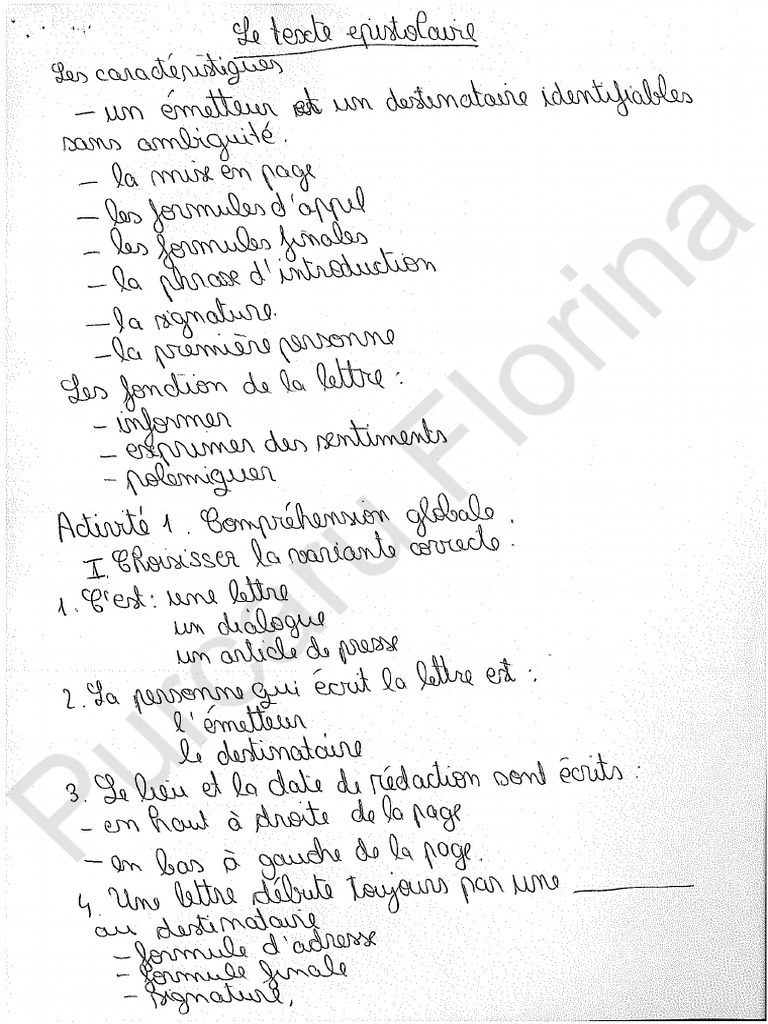 Le texte epistolaire
Les caractéristigues
- un émetteur et un destinataire identifiables
sans ambiguité.
- la mise en page
- les formules d'appel
- les formules finales
- la phrase d'introduction
- la signature.
- la première personne
Les fonction de la lettre :
- informer
- exprimer des sentiments
- polemiguer
Activité 1. Compréhension globale.
I. Choisisser la variante correcte :
1. C'est : une lettre
un dialogue
un article de presse
2. La personne gui écrit la lettre est :
l'émetteur
le destinataire
3. Le lieu et la date de rédaction sont écrits :
- en haut à droite de la page
- en bas à gauche de la page.
4. Une lettre débute toujours par une ________
au destinataire
- formule d'adresse
- formule finale
- signature,
Purcaru Florina